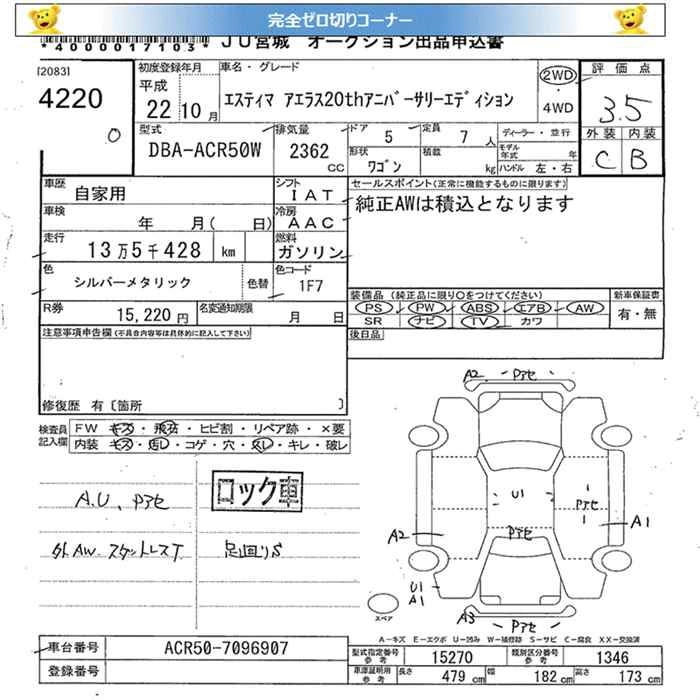 完全ゼロ切りコーナー
*4000017103* JU宮城 オークション出品申込書
[2083]
4220
0
初度登録年月
平成
22 10 月
車名・グレード
エスティマ アエラス20thアニバーサリーエディション
2WD
・
4WD
評価点
3.5
外装 内装
C B
型式
DBA-ACR50W
排気量
2362
CC
ドア
5
定員
7 人
形状
ワゴン
積載
kg
ディーラー・並行
モデル年式 年
ハンドル 左・右
車歴
自家用
シフト
IAT
車検
年 月( 日)
冷房
AAC
走行
13万5千428 km
燃料
ガソリン
色
シルバーメタリック
色替
色コード
1F7
R券
15,220円
名変通知期限
月 日
セールスポイント(正常に機能するものに限ります)
純正AWは積込となります
装備品(純正品に限り○をつけてください)
PS PW ABS エアB AW
SR ナビ TV カワ
新車保証書
有・無
後日品
注意事項申告欄(不具合内容等は具体的に記入して下さい)
修復歴 有〔箇所 〕
検査員記入欄
FW キズ・飛石・ヒビ割・リペア跡・×要
内装 キズ・汚レ・コゲ・穴・スレ・キレ・破レ
A.U、Pアセ
ロック車
外AW.スタットレスT
足回りS
A2 Pアセ
U1
Pアセ
Pアセ
A1
A2
U1
A1
A3 Pアセ
スペア
A-キズ E-エクボ U-凹み W-補修跡 S-サビ C-腐食 XX-交換済
車台番号
ACR50-7096907
登録番号
型式指定番号
参考
15270
類別区分番号
参考
1346
車庫証明用
参考
長さ
479 cm
幅
182 cm
高さ
173 cm